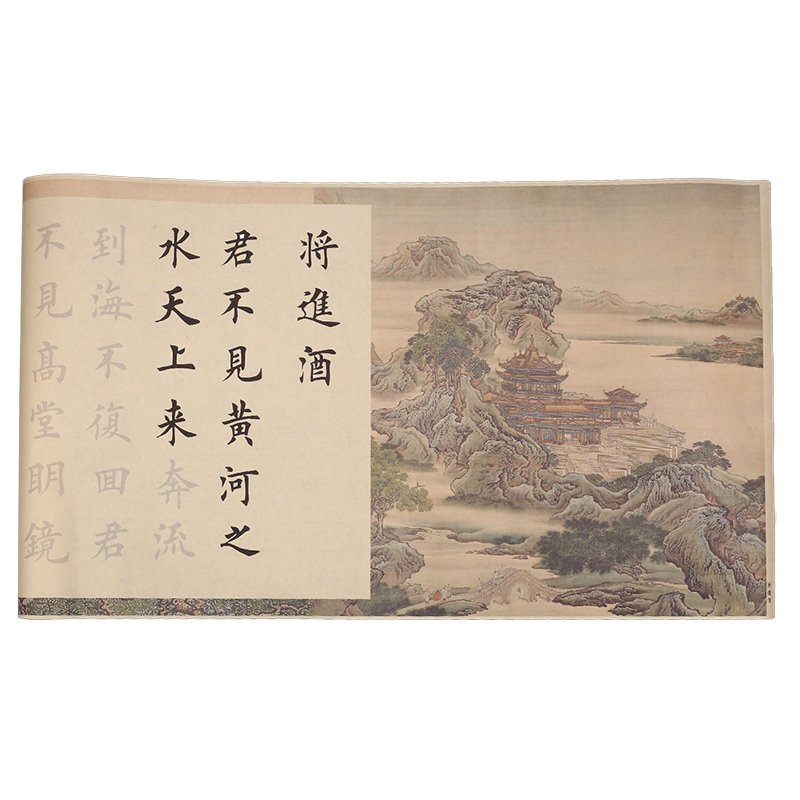 将進酒
君不見黄河之
水天上来奔流
到海不復回君
不見高堂明鏡